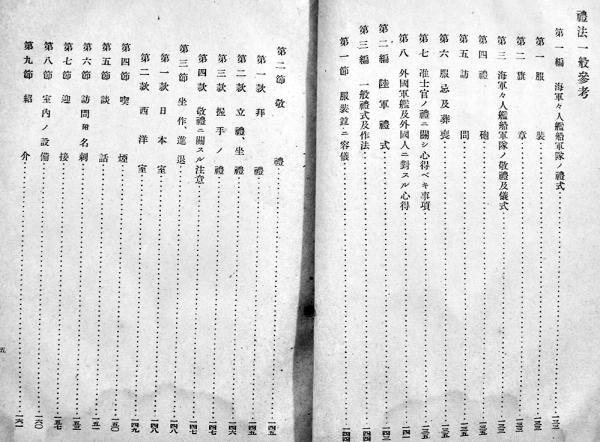 禮法一般參考
第一編 海軍々人艦船軍隊ノ禮式
第一 服裝
第二 旗章
第三 海軍々人艦船軍隊ノ敬禮及儀式
第四 禮砲
第五 訪問
第六 服忌及葬喪
第七 准士官ノ禮ニ關シ心得ベキ事項
第八 外國軍艦及外國人ニ對スル心得
第二編 陸軍禮式
第三編 一般禮式及作法
第一節 服裝竝ニ容儀
第二節 敬禮 一四五
第一款 拜禮 一四五
第二款 立禮、坐禮 一四六
第三款 握手ノ禮 一四七
第四款 敬禮ニ關スル注意 一四七
第三節 坐作、進退 一四八
第一款 日本室 一四八
第二款 西洋室 一四九
第四節 喫煙 一五〇
第五節 談話 一五一
第六節 訪問附名刺
第七節 迎接 一五七
第八節 室內ノ設備 一六〇
第九節 紹介 一六一
五